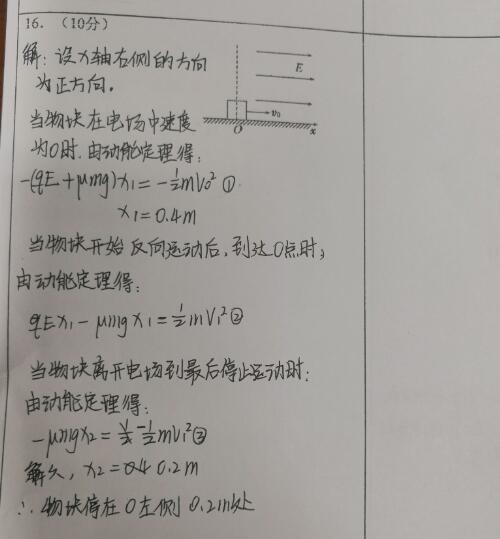 16. （10分）
解：设x轴右侧的方向
为正方向。
E
v₀
O
x
当物块在电场中速度
为0时.由动能定理得：
-(qE+μmg)x₁=-½mv₀² ①
x₁=0.4m
当物块开始反向运动后，到达O点时，
由动能定理得：
qEx₁-μmgx₁=½mv₁²②
当物块离开电场到最后停止运动时：
由动能定理得：
-μmgx₂=-½mv₁²③
x₂=0.2m
∴物块停在O左侧0.2m处